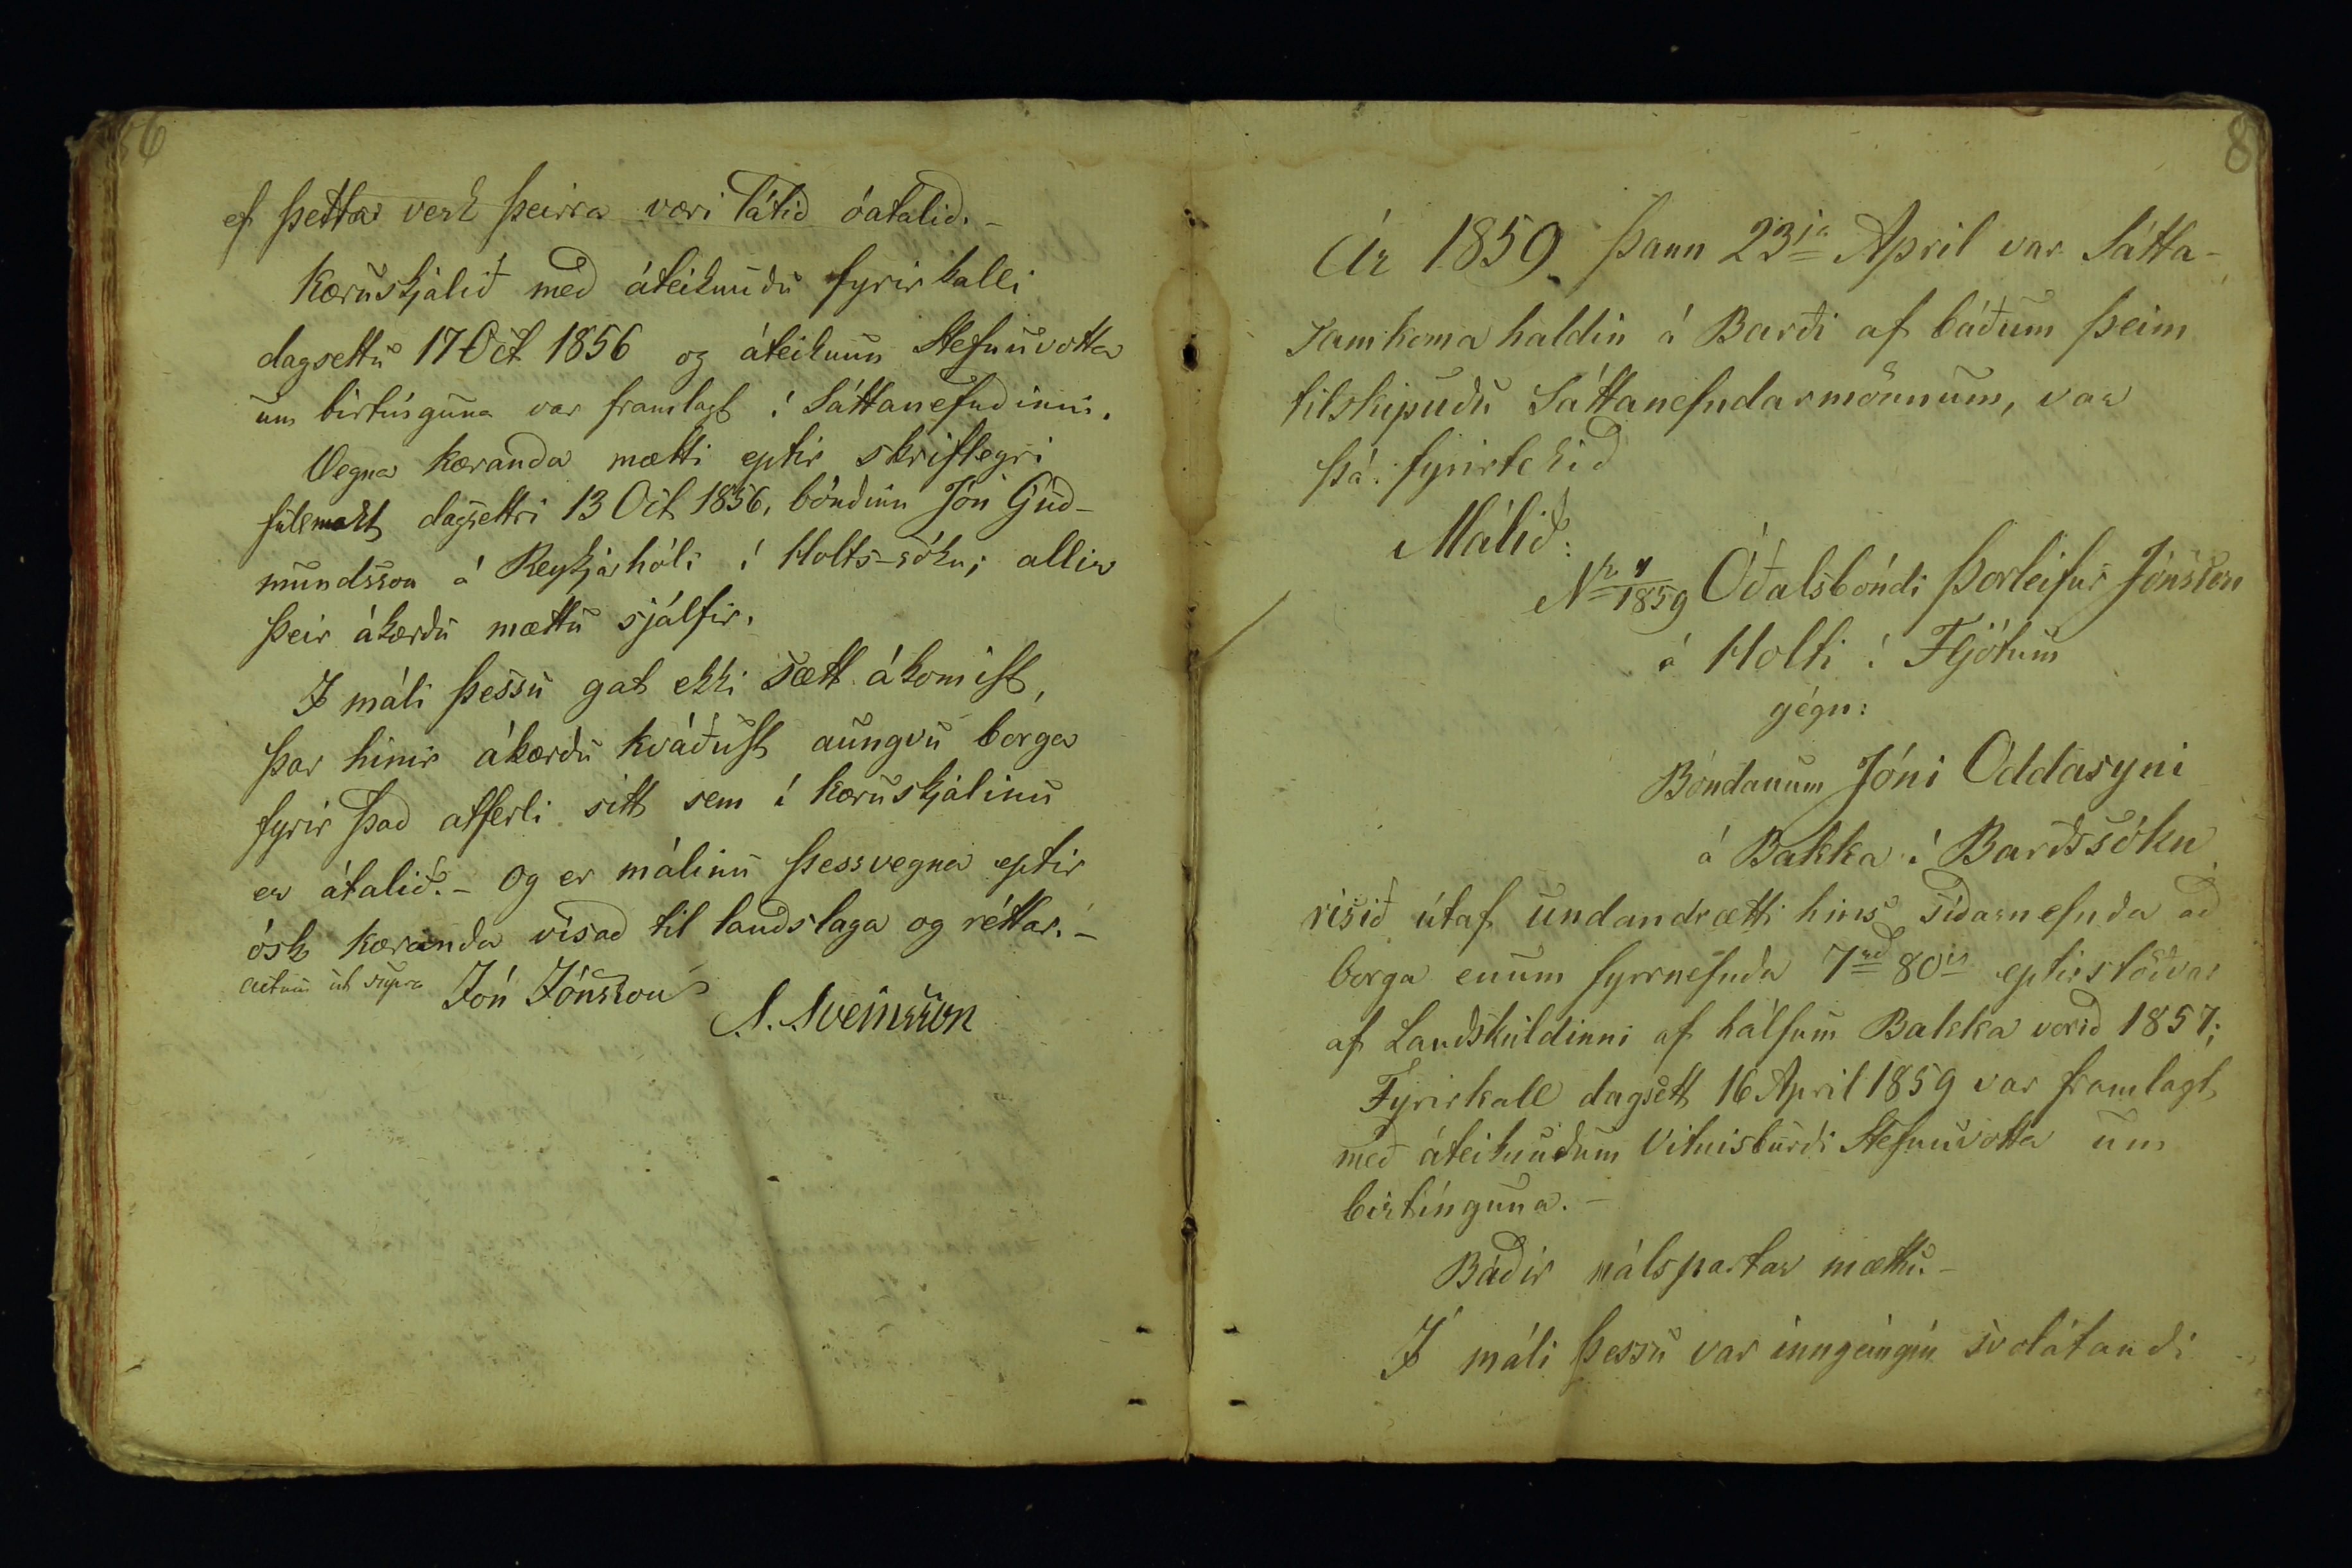 86
ef þetta verk þeirra væri látið óátalið. -
Kæruskjalið með áteiknuðu fyrirkalli
dagsettu 17 Oct 1856 og áteiknun Stefnuvotta
um birtínguna var framlagt í Sáttanefndinni.
Vegna kæranda mætti eptir skriflegri
fullmakt dagsettri 13 Oct 1856, bóndinn Jón Guð-
mundsson á Reykjarhóli í Holts-sókn; allir
þeir ákærðu mættu sjálfir.
I máli þessu gat ekki sætt ákomist,
þar hinir ákærðu kváðust aungvu borga
fyrir það atferli sitt sem í kæruskjalinu
er átalið. - og er málinu þessvegna eptir
ósk kæranda vísað til landslaga og réttar. -
actum ut supra Jón Jónsson
S. Sveinsson
8
Ár 1859 þann 23ja April var Sátta-
samkoma haldin á Barði af báðum þeim
tilskipuðu Sáttanefndarmönnum, var
þá fyrirtekið
Málið:
Nr 1/1859 Óðalsbóndi Þorleifur Jónsson
á Holti í Fljótum
gégn:
Bóndanum Jóni Oddasyni
á Bakka í Barðssókn
risið útaf undandrætti hins síðarnefnda að
borga enum fyrrnefnda 7rd 80is eptirstöðvar
af Landskuldinni af hálfum Bakka vorið 1857;
Fyrirkall dagsett 16 April 1859 var framlagt
með áteiknuðum Vitnisburði Stefnuvotta um
birtínguna. -
Báðir málspartar mættu. -
I máli þessu var inngeingin svolátandi